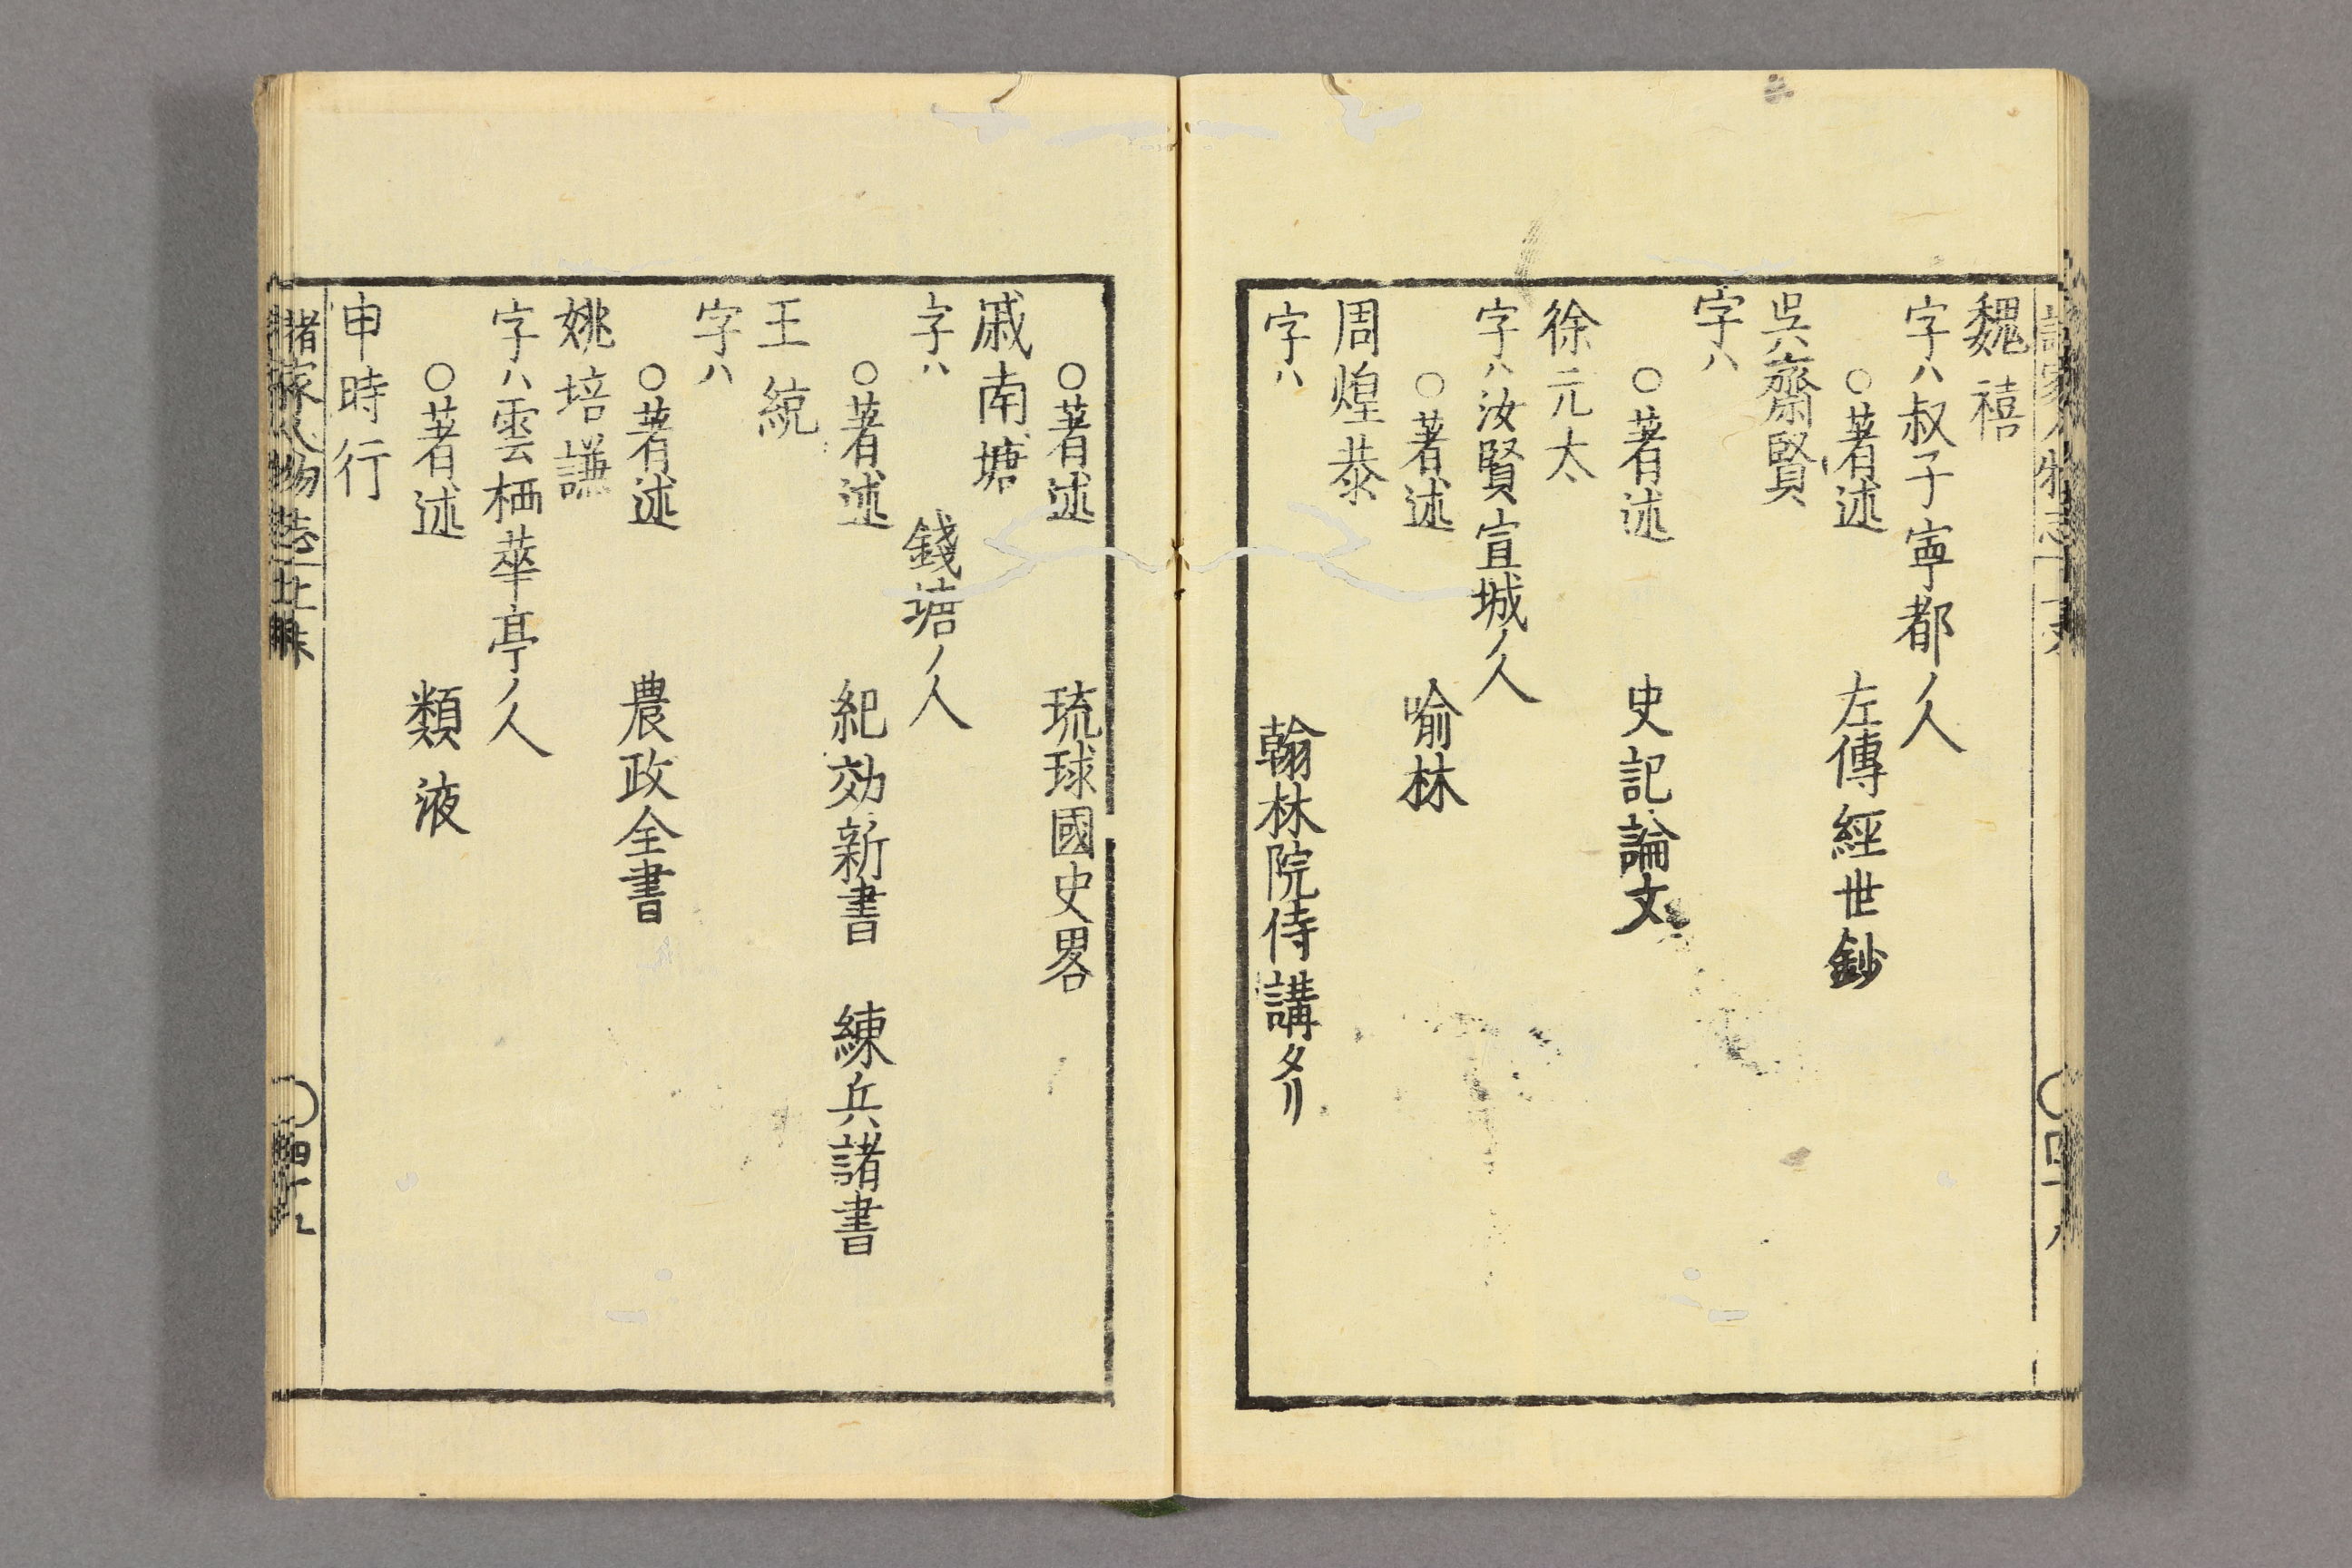 魏禧
字ハ叔子寧都ノ人
○著述 左傳經世鈔
呉齋賢
字ハ
○著述 史記論文
徐元太
字ハ汝賢宣城ノ人
○著述 喻林
周煌恭
字ハ 翰林院侍講タリ
○著述 琉球國史畧
戚南塘
字ハ 錢塘ノ人
○著述 紀効新書 練兵諸書
王統
字ハ
○著述 農政全書
姚培謙
字ハ雲栖華亭ノ人
○著述 類液
申時行
諸家人物誌